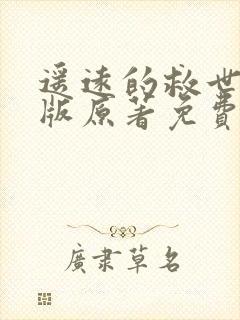 遥远的救世
版原著免費
廣隶草名